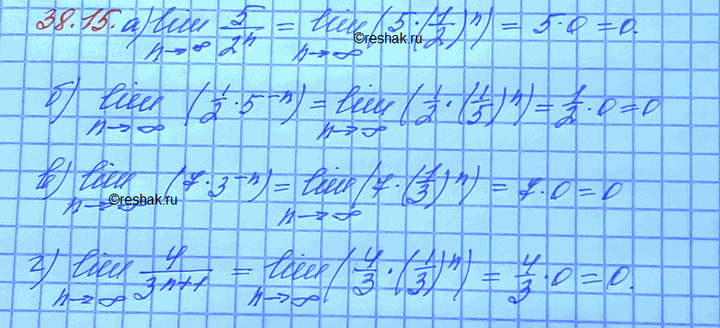 38.15. а) lim n→∞ 5/2ⁿ = lim n→∞ (5·(1/2)ⁿ) = 5·0 = 0.
©reshak.ru
б) lim n→∞ (1/2·5⁻ⁿ) = lim n→∞ (1/2·(1/5)ⁿ) = 1/2·0 = 0
в) lim n→∞ (7·3⁻ⁿ) = lim n→∞ (7·(1/3)ⁿ) = 7·0 = 0
©reshak.ru
г) lim n→∞ 4/3ⁿ⁺¹ = lim n→∞ (4/3·(1/3)ⁿ) = 4/3·0 = 0.